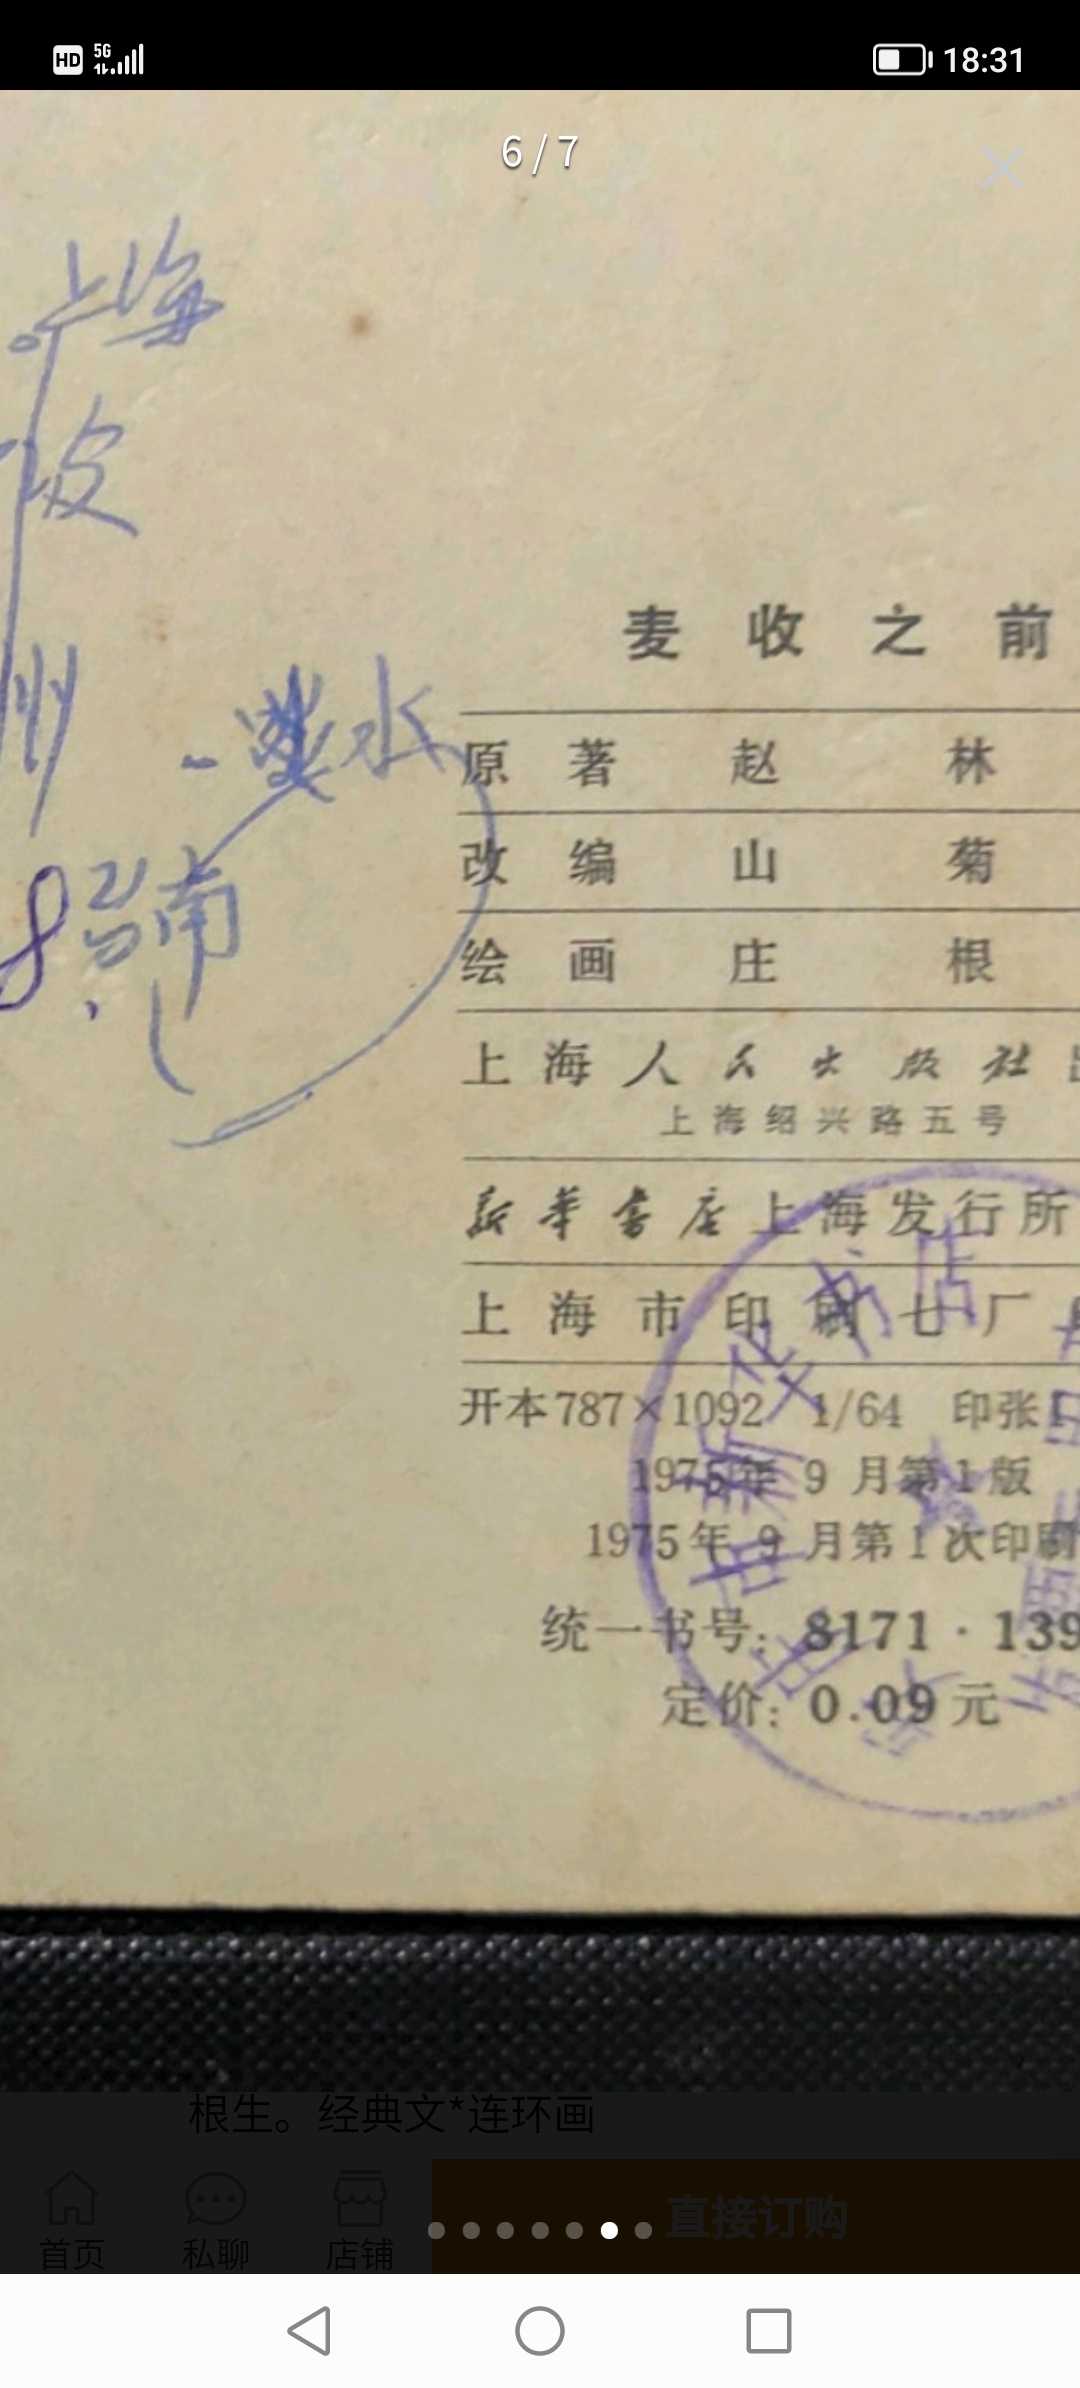 HD 5G 18:31
6/7
上海
皮
州
水
8号南
麦收之前
原著 赵 林
改编 山 菊
绘画 庄 根
上海人民出版社出
上海绍兴路五号
新华书店上海发行所
上海市印刷七厂
开本787×1092 1/64 印张1
1975年9月第1版
1975年9月第1次印刷
统一书号：8171·139
定价：0.09元
新华书店
根生。经典文*连环画
直接订购
首页 私聊 店铺